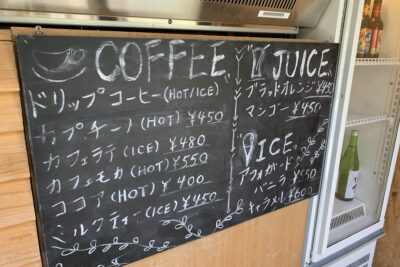 COFFEE
ドリップコーヒー (HOT/ICE)
カプチーノ (HOT) ¥450
カフェラテ (ICE) ¥480
カフェモカ (HOT) ¥550
ココア (HOT) ¥400
ミルクティー (ICE) ¥450
JUICE
ブラッドオレンジ ¥450
マンゴー ¥450
ICE
アフォガード
バニラ ¥550
キャラメル ¥600